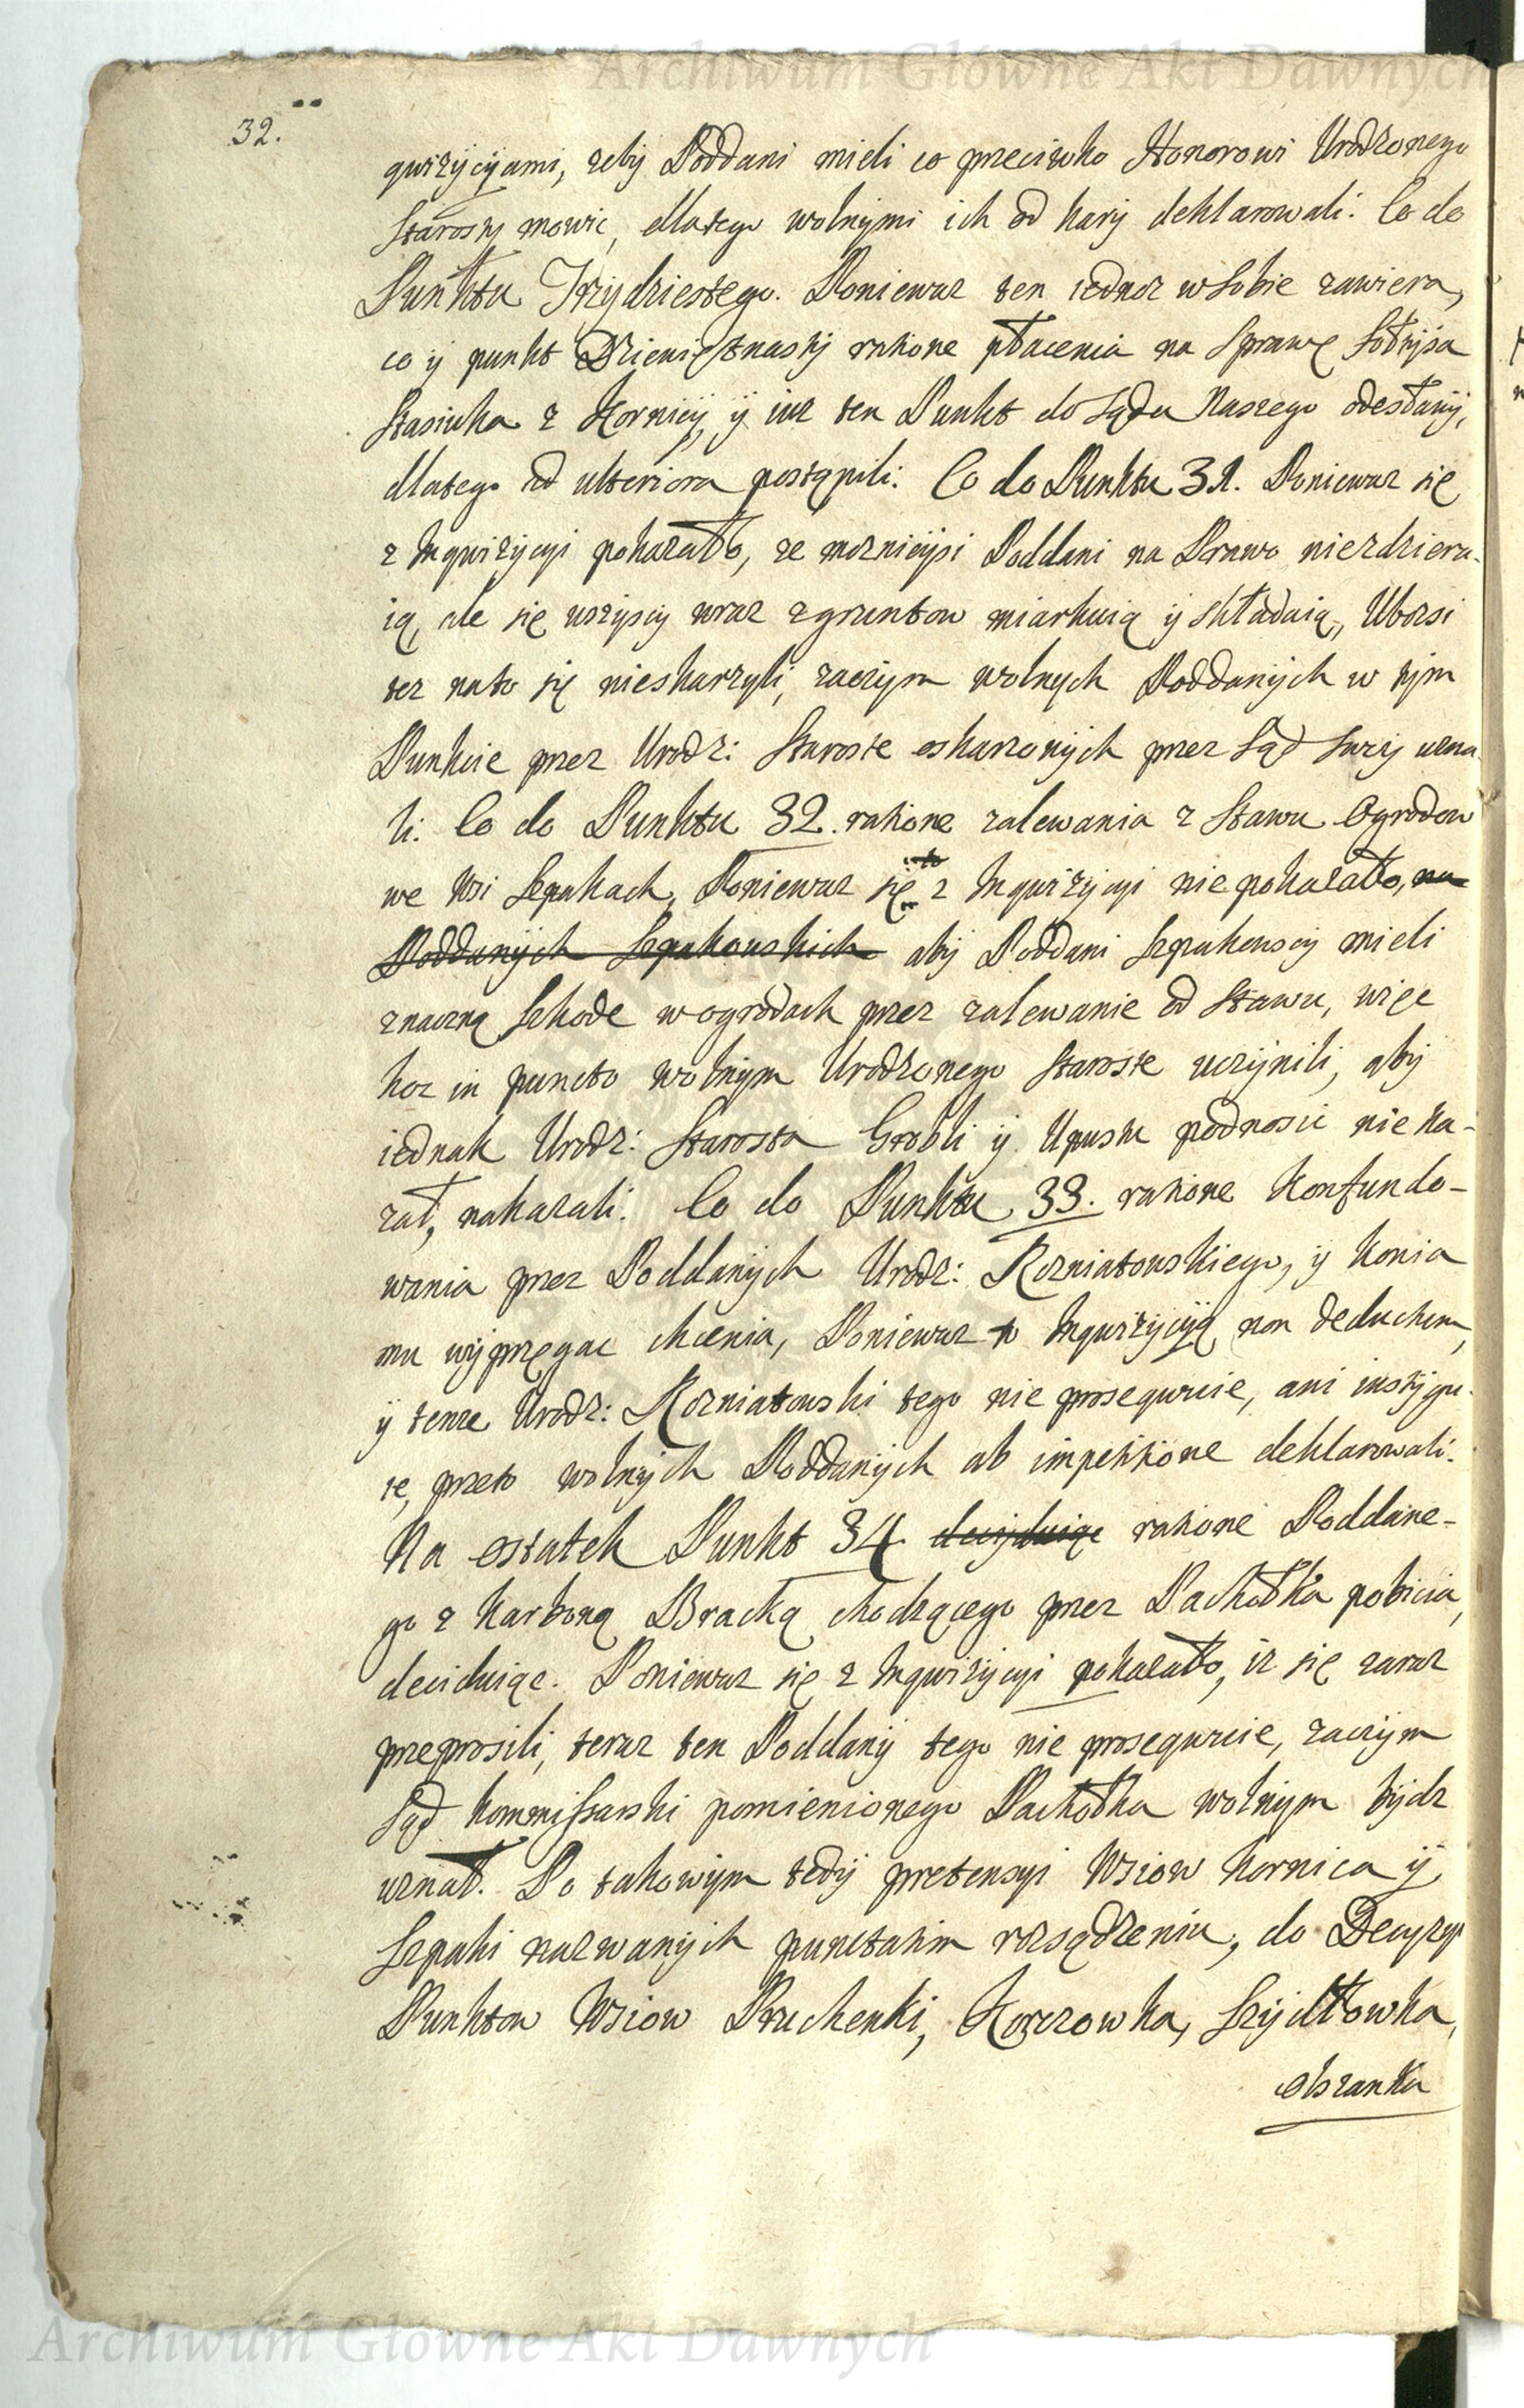 Archiwum Główne Akt Dawnych
32.
qwizycyiami, zeby Poddani mieli co przeciwko Honorowi Urodzonego
Starosty mowic, dlatego wolnymi ich od kary deklarowali. Co do
Punktu Trzydziestego. Poniewaz ten iednoz w sobie zawiera,
co y punkt Dziewiętnasty ratione płacenia na Sprawę Sołtysa
Stasiuka z Kornicy, y iuz ten Punkt do Sądu Naszego odesłany,
dlatego ad ulteriora postąpili. Co do Punktu 31. Poniewaz się
z Inqwizycyi pokazało, ze moznieysi Poddani na Prawo niezdziera-
ią, ale się wszyscy wraz z gruntow miarkuią y składaią, Ubozsi
tez nato się nieskarzyli, zaczym wolnych Poddanych w tym
Punkcie przez Urodz: Staroste oskarzonych przez Sąd Swoy uzna-
li. Co do Punktu 32. ratione zalewania z Stawu Ogrodow
we Wsi Szpakach, Poniewaz się to z Inqwizycyi nie pokazało, na
Poddanych Szpakowskich aby Poddani Szpakowscy mieli
znaczną Szkode w ogrodach przez zalewanie od Stawu, więc
hoc in puncto wolnym Urodzonego Staroste uczynili, aby
iednak Urodz: Starosta Grobli y Upustu podnosic nie ka-
zał, nakazali. Co do Punktu 33. ratione konfundo-
wania przez Poddanych Urodz: Rozniatowskiego, y konia
mu wyprzęgac chcenia, Poniewaz to Inqwizycyą non deductum,
y tenze Urodz: Rozniatowski tego nie proseqwuie, ani instygu-
ie, przeto wolnych Poddanych ab impetitione deklarowali.
Na ostatek Punkt 34. decyduiąc ratione Poddane-
go z Karboną Bracką chodzącego przez Pachołka pobicia,
deciduiąc. Poniewaz się z Inqwizycyi pokazało, iz się zaraz
przeprosili, teraz ten Poddany tego nie proseqwuie, zaczym
Sąd Kommissarski pomienionego Pachołka wolnym bydz
uznał. Po takowym tedy pretensyi Wsiow Kornica y
Szpaki nazwanych punctatim rozsądzeniu, do Decyzyi
Punktow Wsiow Pruchenki, Korczowka, Szydłowka,
Olszanka
Archiwum Główne Akt Dawnych